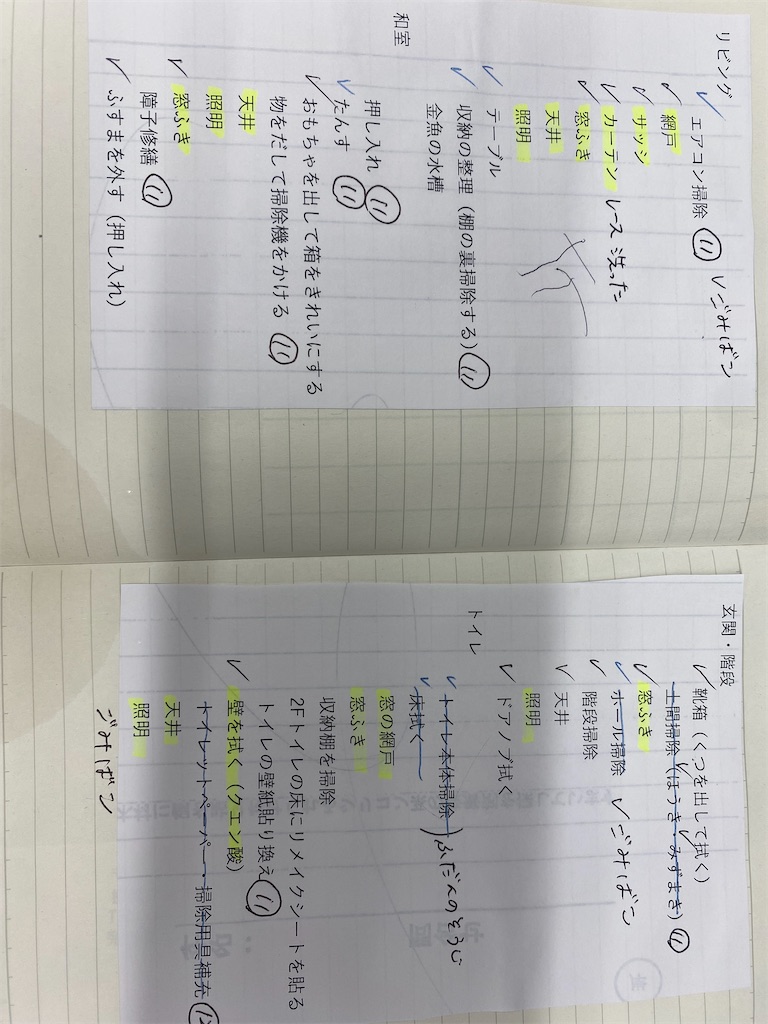 リビング
✓ エアコン掃除 ⑪ ✓ごみばこ
✓ 網戸
✓ サッシ
✓ カーテン レース 洗った
✓ 窓ふき
天井
照明
✓ テーブル
✓ 収納の整理(棚の裏掃除する) ⑪
金魚の水槽
和室
押し入れ ⑪
✓ たんす ⑪
✓ おもちゃを出して箱をきれいにする
物をだして掃除機をかける ⑪
天井
照明
✓ 窓ふき
障子修繕 ⑪
✓ ふすまを外す(押し入れ)
玄関・階段
✓ 靴箱(くつを出して拭く)
土間掃除(ほうき・みずまき) ⑪
✓ 窓ふき
✓ ホール掃除 ✓ごみばこ
✓ 階段掃除
✓ 天井
照明
✓ ドアノブ拭く
トイレ
✓ トイレ本体掃除 )ふだんのそうじ
✓ 床拭く
窓の網戸
窓ふき
収納棚を掃除
2Fトイレの床にリメイクシートを貼る
トイレの壁紙貼り換え ⑪
✓ 壁を拭く(クエン酸)
トイレットペーパー、掃除用具補充 ⑫
天井
照明
ごみばこ